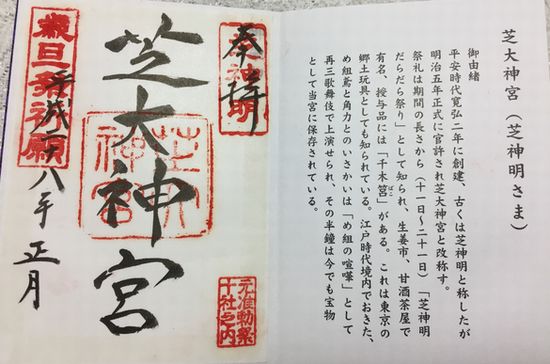 芝大神宮(芝神明さま)
御由緒
平安時代寛弘二年に創建、古くは芝神明と称したが
明治五年正式に官許され芝大神宮と改称す。
祭礼は期間の長さから(十一日~二十一日)「芝神明
だらだら祭り」として知られ、生姜市、甘酒茶屋で
有名、授与品には「千木筥」がある。これは東京の
郷土玩具としても知られている。江戸時代境内でおきた、
め組鳶と角力とのいさかいは「め組の喧嘩」として
再三歌舞伎で上演せられ、その半鐘は今でも宝物
として当宮に保存されている。
奉拝
芝神明
元准勅祭
十社之内
芝大神宮
芝大
神宮
平成廿八年正月